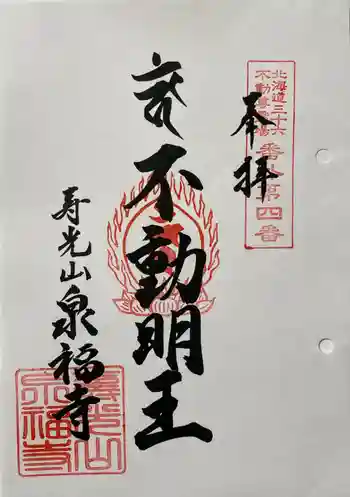 奉拝
北海道三十六
不動尊霊場
番外第四番
不動明王
寿光山泉福寺
寿光山
泉福寺